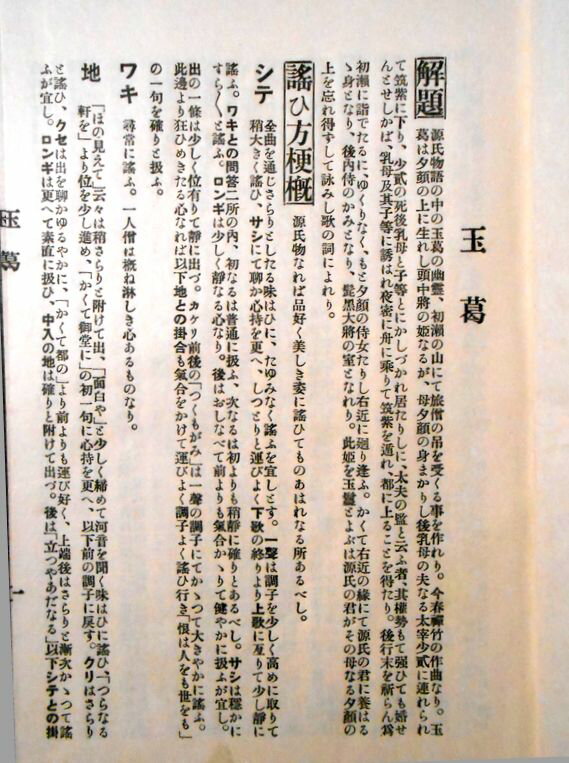 玉葛
解題　源氏物語の中の玉葛の幽靈、初瀬の山にて旅僧の弔を受くる事を作れり。今春禪竹の作曲なり。玉
葛は夕顔の上に生れし頭中將の姫なるが、母夕顔の身まかりし後乳母の夫なる太宰少貳に連れられ
て筑紫に下り、少貳の死後乳母と子等とにかしづかれ居たりしに、太夫の監と云ふ者、其權勢もて强ひても婚せ
んとせしかば、乳母及其子等に誘はれ夜密に舟に乘りて筑紫を遁れ、都に上ることを得たり。後行末を祈らん爲
初瀬に詣でたるに、ゆくりなく、もと夕顔の侍女たりし右近に廻り逢ふ。かくて右近の緣にて源氏の君に養はる
ゝ身となり、後內侍のかみとなり、髭黑大將の室となれり。此姫を玉鬘とよぶは源氏の君がその母なる夕顔の
上を忘れ得ずして詠みし歌の詞によれり。
謠ひ方梗槪　源氏物なれば品好く美しき姿に謠ひてものあはれなる所あるべし。
シテ　全曲を通じさらりとしたる味はひに、たゆみなく謠ふを宜しとす。一聲は調子を少しく高めに取りて
稍大きく謠ひ、サシにて聊か心持を更へ、しつとりと運びよく下歌の終りより上歌に亙りて少し靜に
謠ふ。ワキとの問答二所の內、初なるは普通に扱ふ、次なるは初よりも稍靜に確りとあるべし。サシは穩かに
すら〱と謠ふ。ロンギは少しく靜なる心なり。後はおしなべて前よりも氣合かゝりて健やかに扱ふが宜し。
出の一條は少しく位有りて靜に出づ。カケリ前後の「つくもがみ」は一聲の調子にてかゝつて大きやかに謠ふ。
此邊より狂ひめきたる心なれば以下地との掛合も氣合をかけて運びよく調子よく謠ひ行き「恨は人をも世をも」
の一句を確りと扱ふ。
ワキ　尋常に謠ふ。一人僧は槪ね淋しき心あるものなり。
地　「ほの見えて」云々は稍さらりと附けて出、「面白や」と少しく締めて河音を聞く味はひに謠ひ「つらなる
軒を」より位を少し進め、「かくて御堂に」の初一句に心持を更へ、以下前の調子に戻す。クリはさらり
と謠ひ、クセは出を聊かゆるやかに、「かくて都の」より前よりも運び好く、上端後はさらりと漸次かゝつて謠
ふが宜し。ロンギは更へて素直に扱ひ、中入の地は確りと附けて出づ。後は「立つやあだなる」以下シテとの掛
玉葛
一